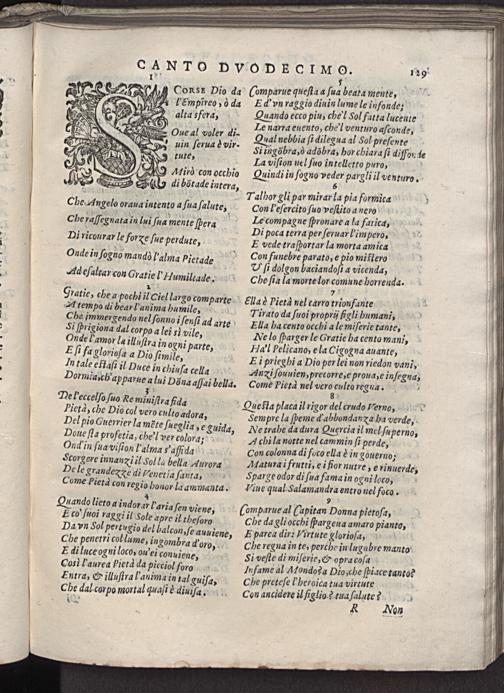 CANTO DVODECIMO.
129
1
SCORSE Dio da
l'Empireo, ò da
alta sfera,
Oue al voler di-
uin serua è vir-
tute,
Mirò con occhio
di bõtade intera,
Che Angelo oraua intento a sua salute,
Che rassegnata in lui sua mente spera
Di ricourar le forze sue perdute,
Onde in sogno mandò l'alma Pietade
Ad esaltar con Gratie l'Humiltade.
2
Gratie, che a pochi il Ciel largo comparte
A tempo di bear l'anima humile,
Che immergendo nel sonno i sensi ad arte
Si sprigiona dal corpo a lei sì vile,
Onde l'amor la illustra in ogni parte,
E si fa gloriosa a Dio simile,
In tale estasi il Duce in chiusa cella
Dormia, ch'apparue a lui Dõna assai bella.
3
De l'eccelso suo Re ministra fida
Pietà, che Dio col vero culto adora,
Del pio Guerrier la mẽte sueglia, e guida,
Doue sta profetia, che'l ver colora;
Ond'in sua vision l'alma s'affida
Scorgere innanzi il Sol la bella Aurora
De le grandezze di Venetia santa,
Come Pietà con regio honor la ammanta.
4
Quando lieto a indorar l'aria sen viene,
E co' suoi raggi il Sole apre il thesoro
Da vn Sol pertugio del balcon, se auuiene,
Che penetri col lume, ingombra d'oro,
E di luce ogni loco, ou'ei conuiene,
Così l'aurea Pietà da picciol foro
Entra, & illustra l'anima in tal guisa,
Che dal corpo mortal quasi è diuisa.
5
Comparue questa a sua beata mente,
E d'vn raggio diuin lume le infonde;
Quando ecco piu, che'l Sol fatta lucente
Le narra euento, che'l venturo asconde,
Qual nebbia si dilegua al Sol presente
Si ingõbra, ò adõbra, hor chiara si diffonde
La vision nel suo intelletto puro,
Quindi in sogno veder pargli il venturo.
6
Talhor gli par mirar la pia formica
Con l'esercito suo vestito a nero
Le compagne spronare a la fatica,
Di poca terra per seruar l'impero,
E vede trasportar la morta amica
Con funebre parato, e pio mistero
V' si dolgon baciandosi a vicenda,
Che sia la morte lor comune horrenda.
7
Ella è Pietà nel carro trionfante
Tirato da suoi proprij figli humani,
Ella ha cento occhi a le miserie tante,
Ne lo sparger le Gratie ha cento mani,
Ha'l Pelicano, e la Cigogna auante,
E i prieghi a Dio per lei non riedon vani,
Anzi souuien, precorre, e proua, e insegna,
Come Pietà nel vero culto regna.
8
Questa placa il rigor del crudo Verno,
Sempre la speme d'abbondanza ha verde,
Ne trabe da dura Quercia il mel superno,
A chi la notte nel cammin si perde,
Con colonna di foco ella è in gouerno;
Matura i frutti, e i fior nutre, e rinuerde,
Sparge odor di sua fama in ogni loco,
Viue qual Salamandra entro nel foco.
9
Comparue al Capitan Donna pietosa,
Che da gli occhi spargeua amaro pianto,
E parea dir: Virtute gloriosa,
Che regna in te, perche in lugubre manto
Si veste di miserie, & opra cosa
Infame al Mondo? a Dio, che spiace tanto?
Che pretese l'heroica tua virtute
Con ancidere il figlio? tua salute?
R Non